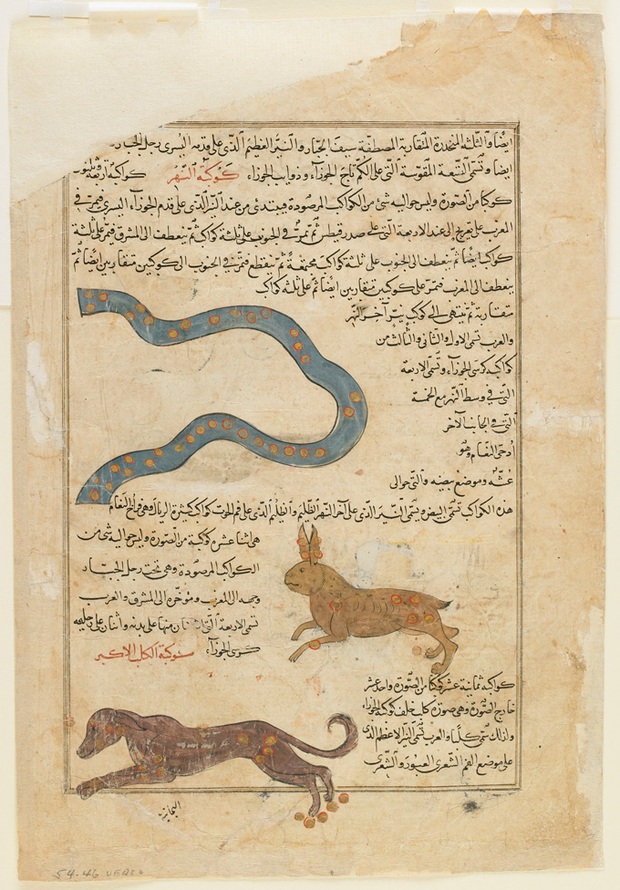 ايضا والثلثه المنحدرة المتقاربة المصطفة سيف الجبار والنير العظيم الذى على قدمه اليسرى رجل الجبار
ايضا وتسمى التسعة المقوسة التى على الكم تاج الجوزآء وذوايب الجوزآء كوكبة النهر كواكبه اربعة وثلثون
كوكبا من الصورة وليس حواليه شئ من الكواكب المرصودة فيبتدئ من عند النير الذى على قدم الجوزآء اليسرى فيمر فى
المغرب على تعريج الى عند الاربعة التى على صدر قيطس ثم تمر فى الجنوب على ثلثة كواكب ثم ينعطف الى المشرق فيمر على ثلثة
كواكب ايضا ثم ينعطف الى الجنوب على ثلثة كواكب مجتمعة ثم ينقطع فيمر فى الجنوب الى كوكبين متقاربين ايضا ثم
ينعطف الى المغرب فيمر على كوكبين متقاربين ايضا ثم على ثلثة كواكب
متقاربة ثم ينتهى الى كوكب نير آخر النهر
والعرب تسمى الاول والثانى والثالث من
كواكبه كرسى الجوزآء وتسمى الاربعه
التى فى وسط النهر مع الخمسة
التى فى الجانب الآخر
ادحى النعام وهو
عشه وموضع بيضه والتى حوالى
هذه الكواكب تسمى البيض ويسمى النير الذى على آخر النهر الظليم والظليم الذى على فم الحوت كواكب كثيرة الريال وهى فراخ النعام
هى اثنا عشر كوكبة من الصورة وليس حواليه شئ من
الكواكب المرصودة وهى تحت رجل الجبار
وجهه الى المغرب ومؤخره الى المشرق والعرب
تسمى الاربعة التى اثنان منها على بدنه واثنان على رجليه
كرسى الجوزآء كوكبة الكلب الاكبر
كواكبه ثمانية عشر كوكبا من الصورة واحد عشر
خارج الصورة وهى صورة كلب خلف كوكبة الجوزاء
ولذلك سمى كلبا والعرب تسمى النير الاعظم الذى
على موضع الفم الشعرى العبور والشعرى
اليمانية
54.46 verso